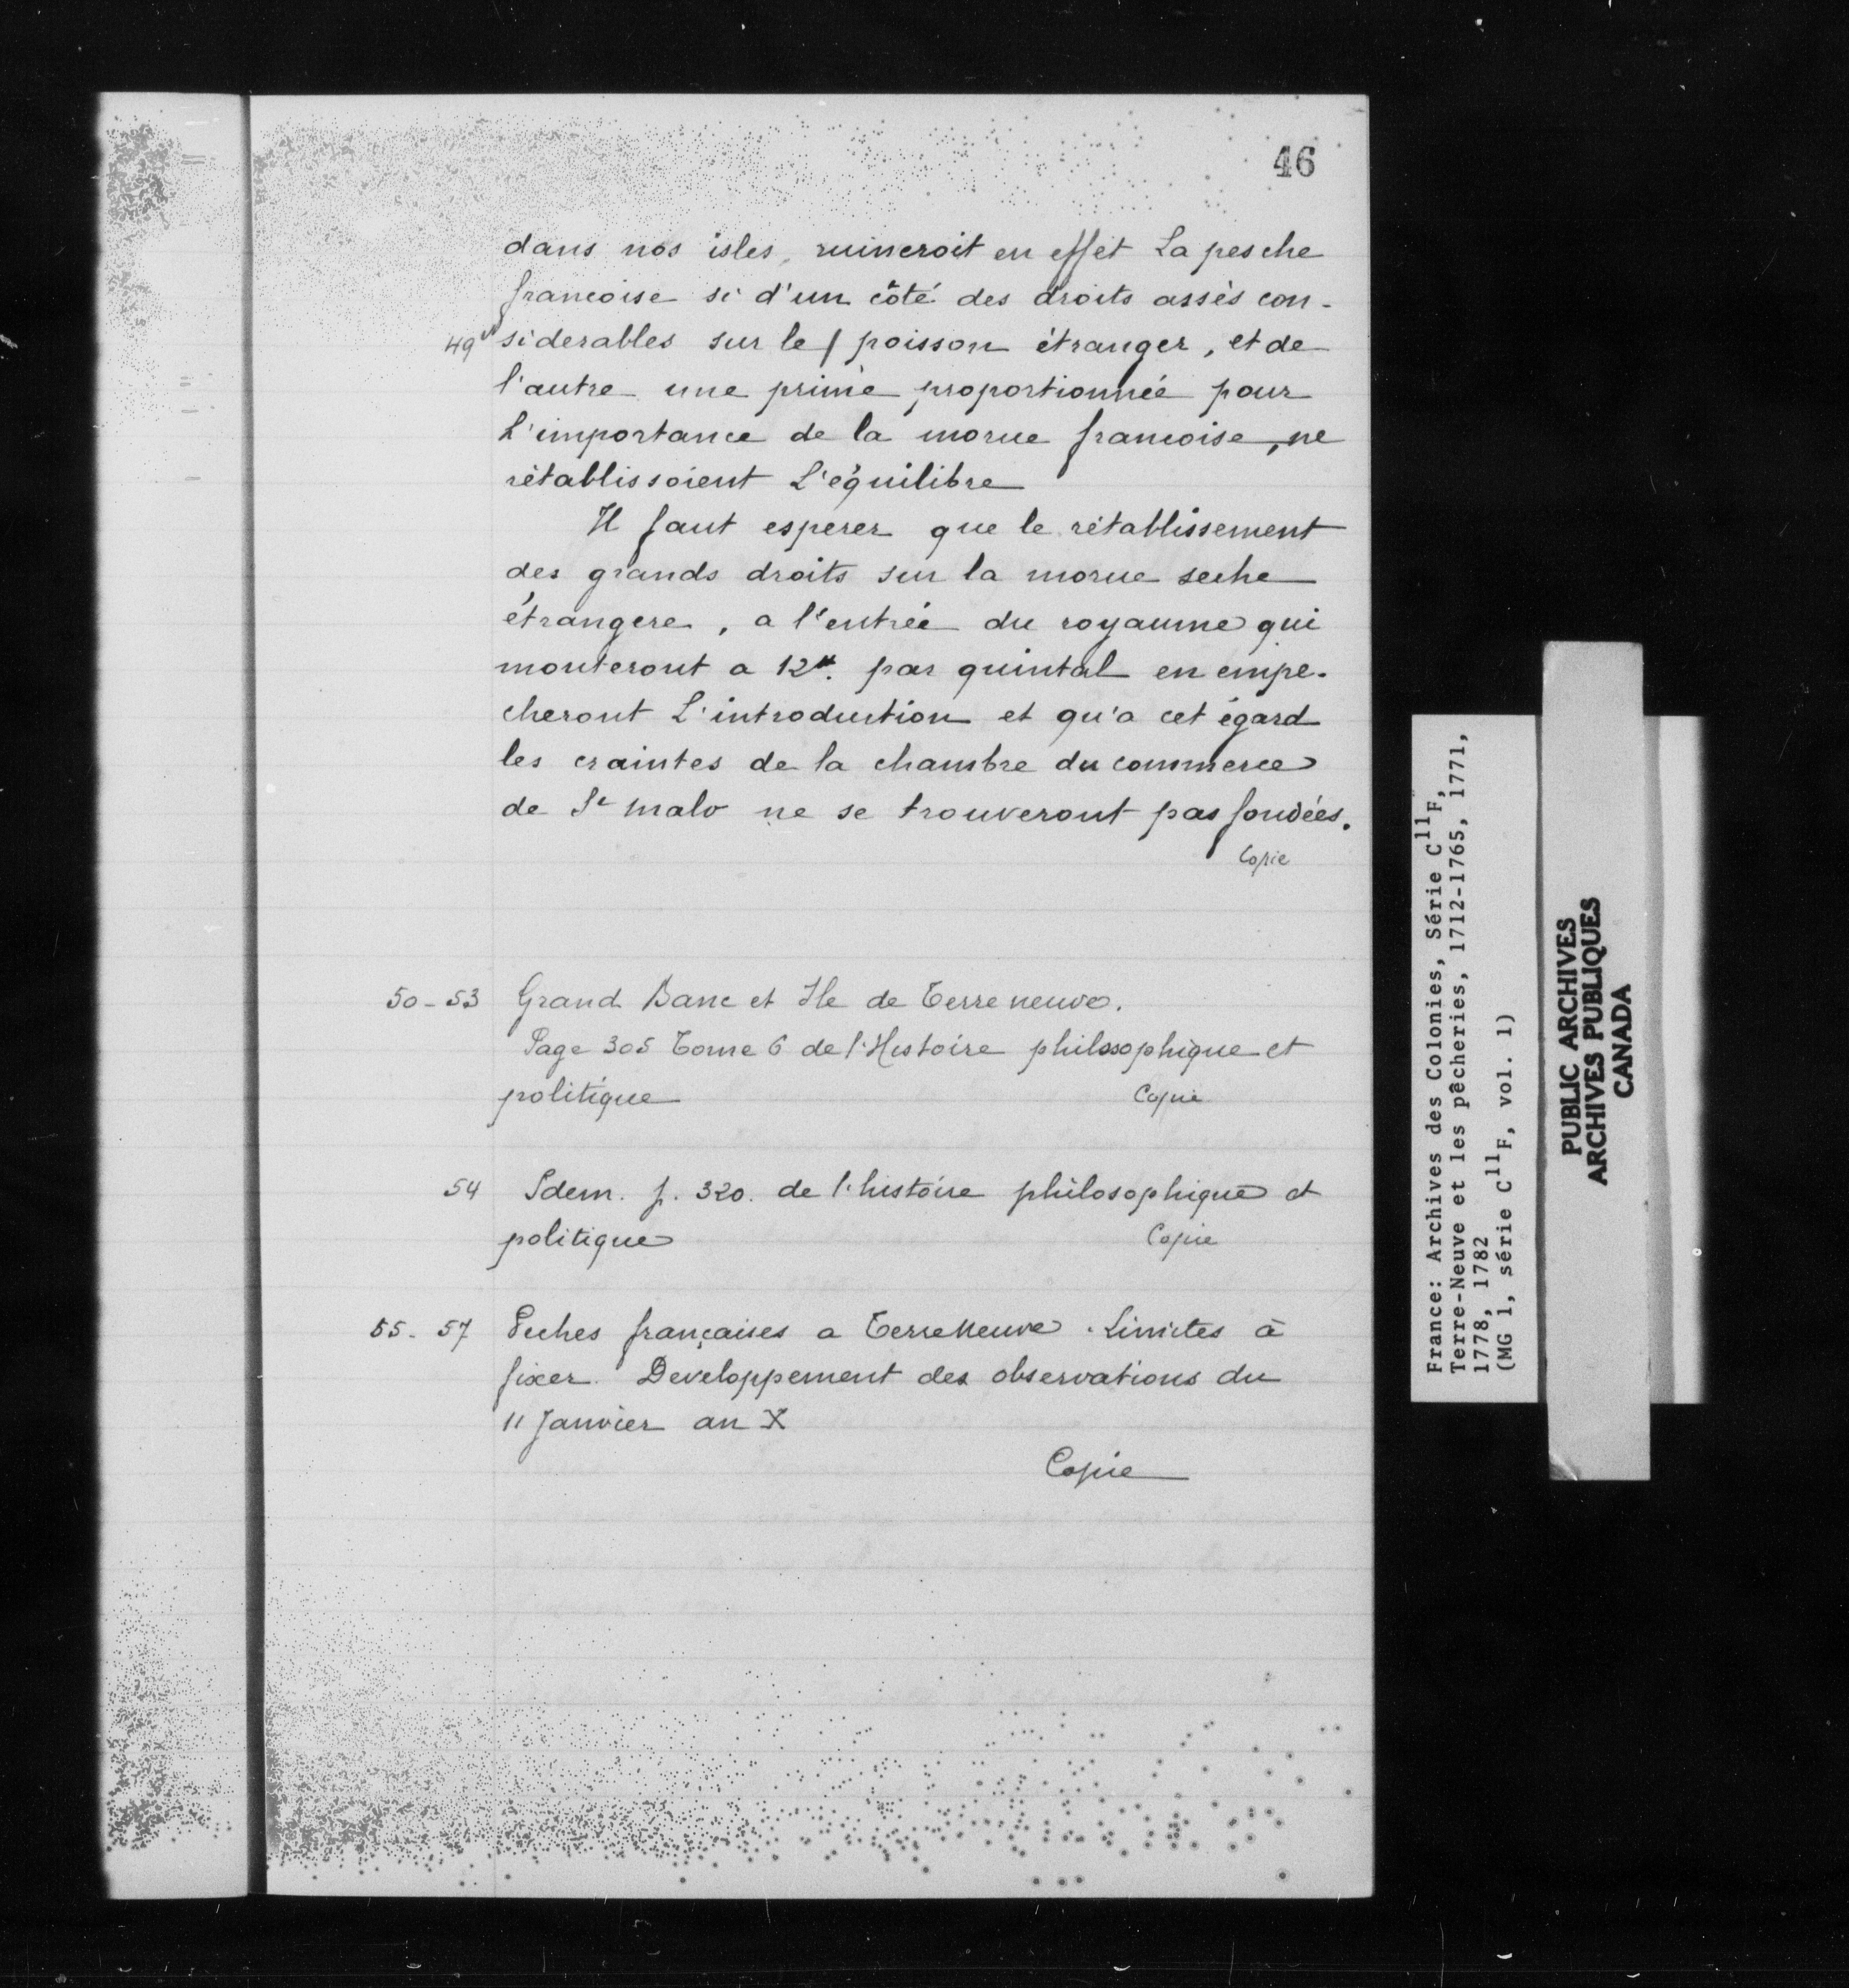 46
dans nos isles, ruineroit en effet La pesche
francoise si d'un côté des droits assès con-
49v siderables sur le / poisson étranger, et de
l'autre une prime proportionnée pour
L'importance de la morue francoise, ne
rétablissoient L'équilibre
Il faut esperer que le rétablissement
des grands droits sur la morue seche
étrangere, a l'entrée du royaume qui
monteront a 12#. par quintal en empe-
cheront L'introduction et qu'a cet égard
les craintes de la chambre du commerce
de St malo ne se trouveront pas fondées.
Copie
50-53 Grand Banc et Ile de Terre neuve.
Page 305 Tome 6 de l'Histoire philosophique et
politique Copie
54 Idem. p. 320. de l'histoire philosophique et
politique Copie
55-57 Peches françaises a Terre Neuve. Limites à
fixer. Developpement des observations du
11 Janvier an X
Copie
France: Archives des Colonies, Série C11F,
Terre-Neuve et les pêcheries, 1712-1765, 1771,
1778, 1782
(MG 1, série C11F, vol. 1)
PUBLIC ARCHIVES
ARCHIVES PUBLIQUES
CANADA